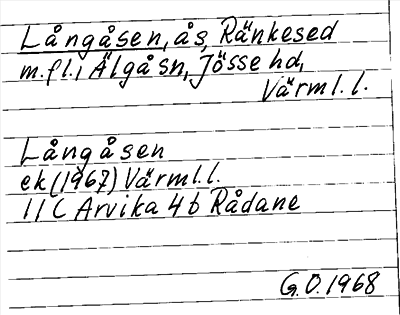 Långåsen, ås, Ränkesed
m.fl., Älgå sn, Jösse hd,
Värml. l.
Långåsen
ek (1967) Värml. l.
11 C Arvika 4 b Rådane
G.O. 1968